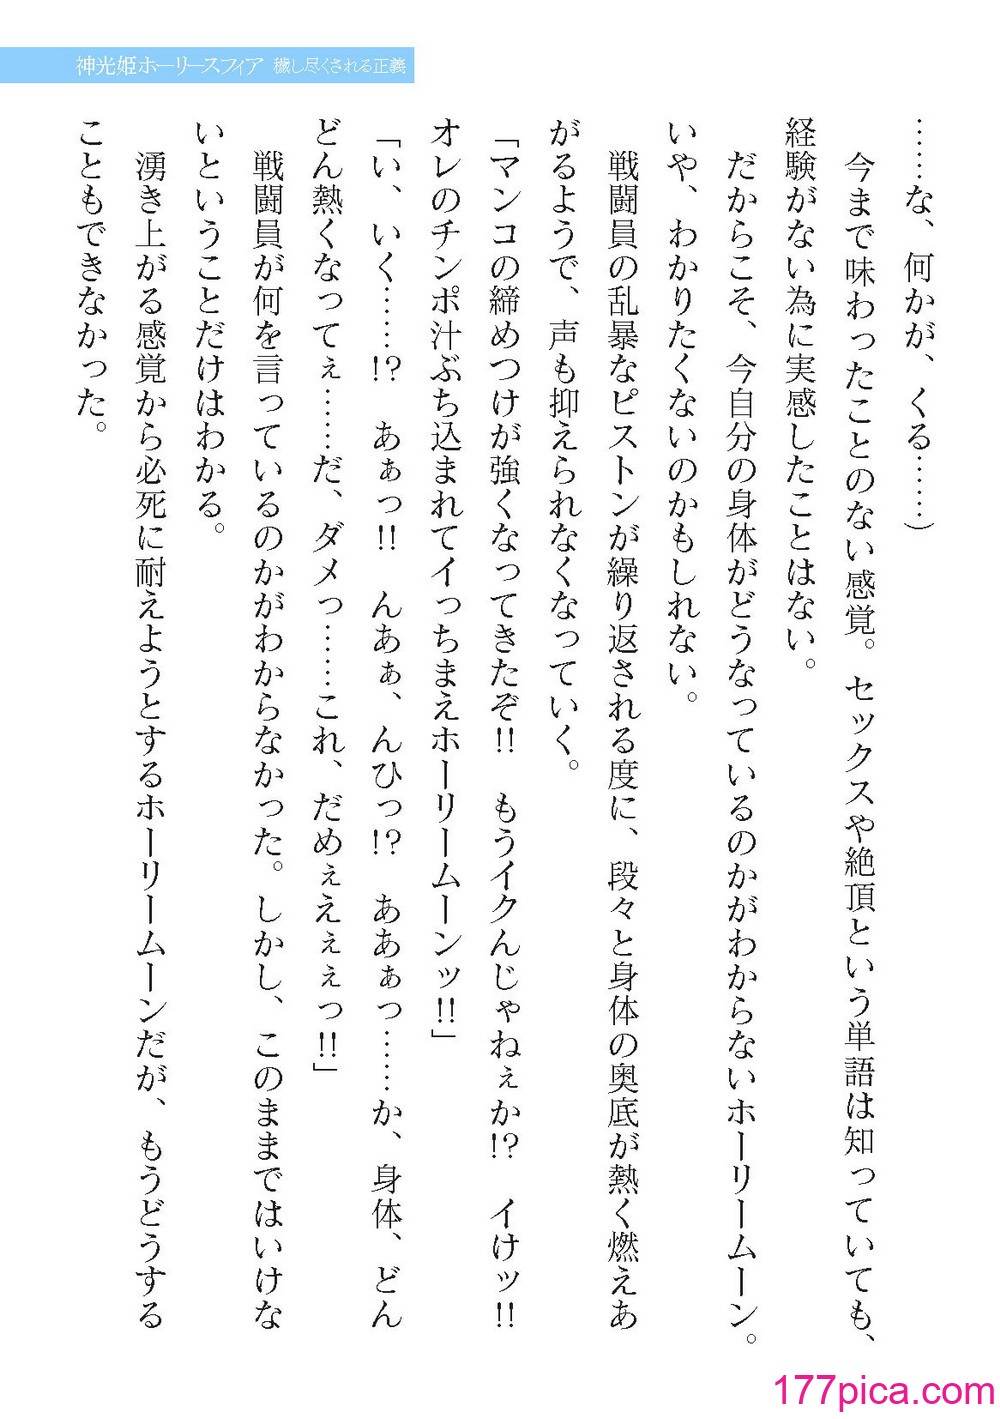 神光姫ホーリースフィア 穢し尽くされる正義
……な、何かが、くる……)
今まで味わったことのない感覚。セックスや絶頂という単語は知っていても、
経験がない為に実感したことはない。
だからこそ、今自分の身体がどうなっているのかがわからないホーリームーン。
いや、わかりたくないのかもしれない。
戦闘員の乱暴なピストンが繰り返される度に、段々と身体の奥底が熱く燃えあ
がるようで、声も抑えられなくなっていく。
「マンコの締めつけが強くなってきたぞ!! もうイクんじゃねぇか!? イけッ!!
オレのチンポ汁ぶち込まれてイっちまえホーリームーンッ!!」
「い、いく……!? あぁっ!! んあぁ、んひっ!? ああぁっ……か、身体、どん
どん熱くなってぇ……だ、ダメっ……これ、だめぇえぇぇっ!!」
戦闘員が何を言っているのかがわからなかった。しかし、このままではいけな
いということだけはわかる。
湧き上がる感覚から必死に耐えようとするホーリームーンだが、もうどうする
こともできなかった。
177pica.com